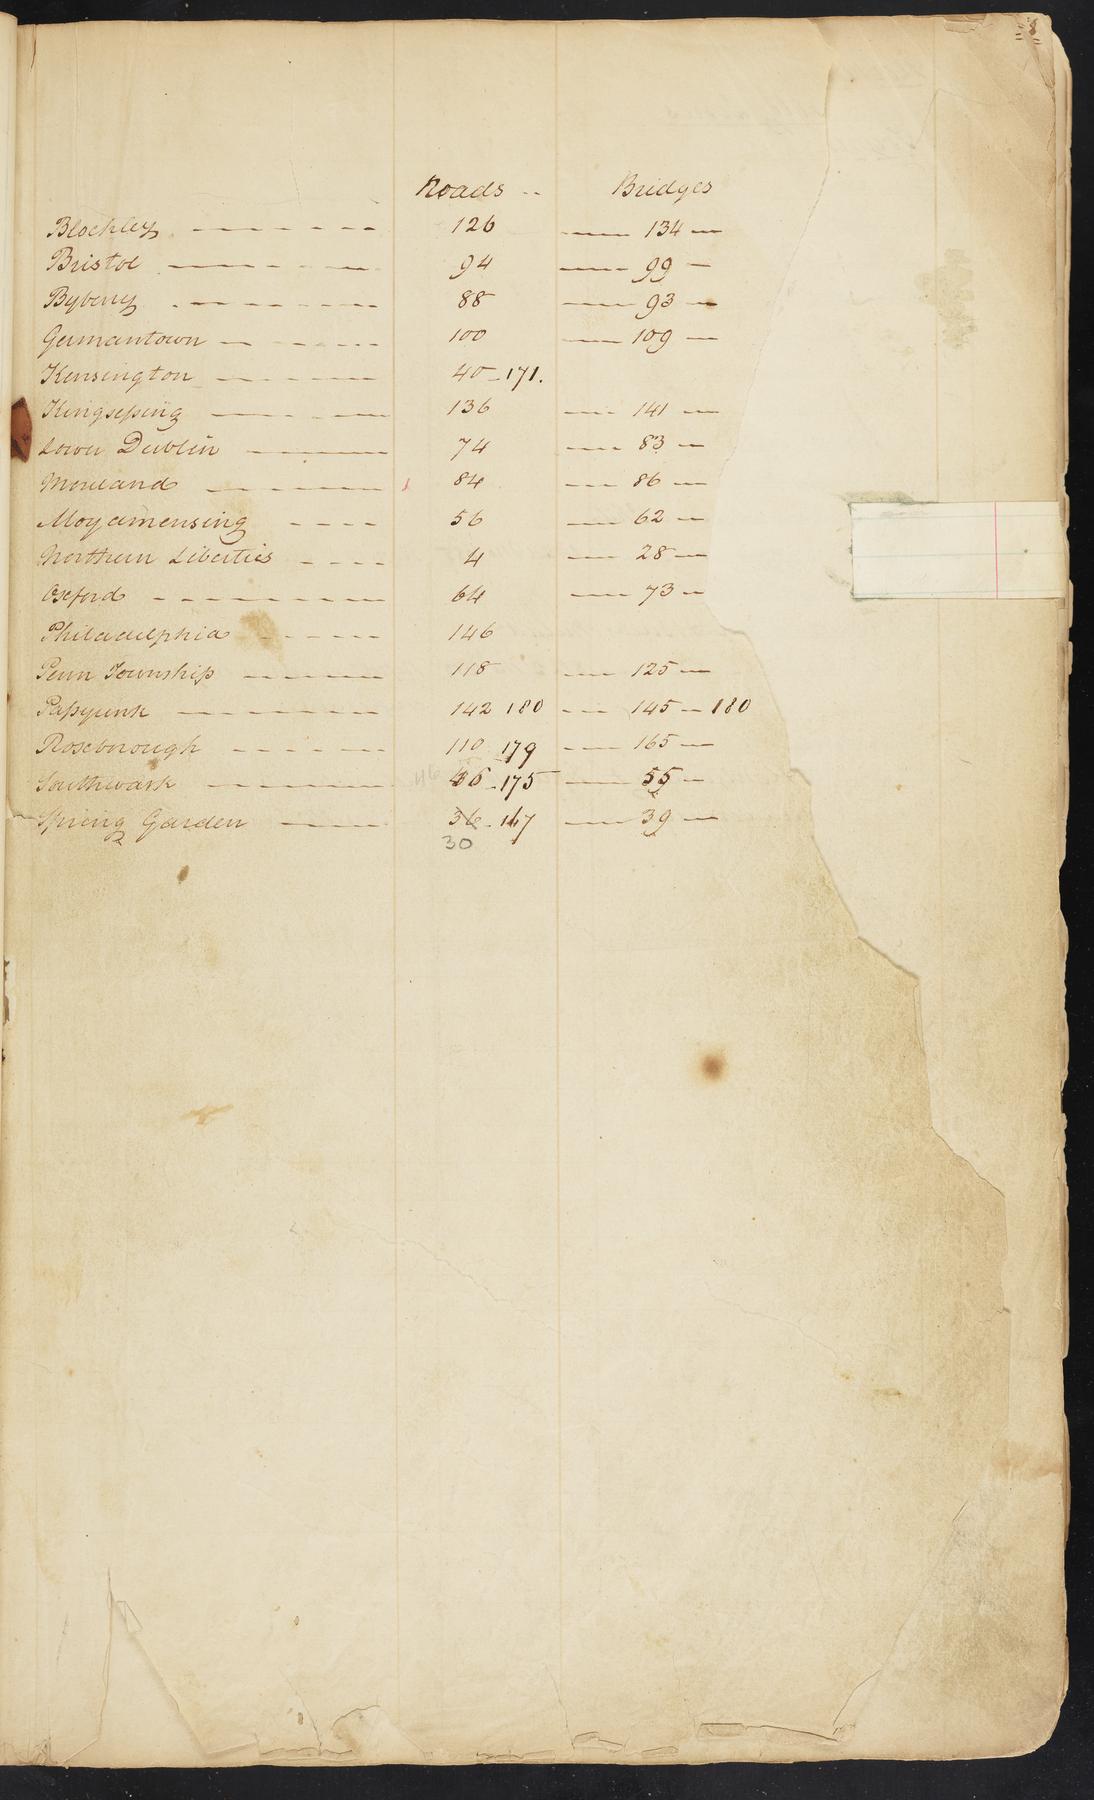 Roads -- Bridges
Blockley 126 134
Bristol 94 99
Byberry 88 93
Germantown 100 109
Kensington 40-171.
Kingsessing 136 141
Lower Dublin 74 83
Moreland 84 86
Moyamensing 56 62
Northern Liberties 4 28
Oxford 64 73
Philadelphia 146
Penn Township 118 125
Passyunk 142 180 145 - 180
Roxborough 110 179 165
Southwark 46 46-175 55
Spring Garden 36-167 39
30